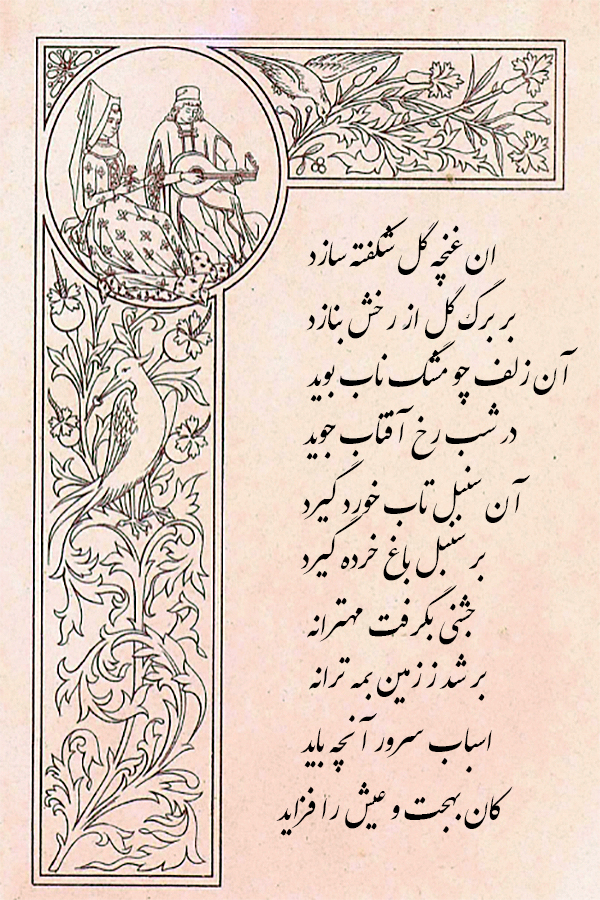 ان غنچه گل شکفته سازد
بر برگ گل از رخش بنازد
آن زلف چو مشک ناب بوید
در شب رخ آفتاب جوید
آن سنبل تاب خورد گیرد
بر سنبل باغ خرده گیرد
جشنی بگرفت مهترانه
بر شد ز زمین بمه ترانه
اسباب سرور آنچه باید
کان بهجت و عیش را فزاید